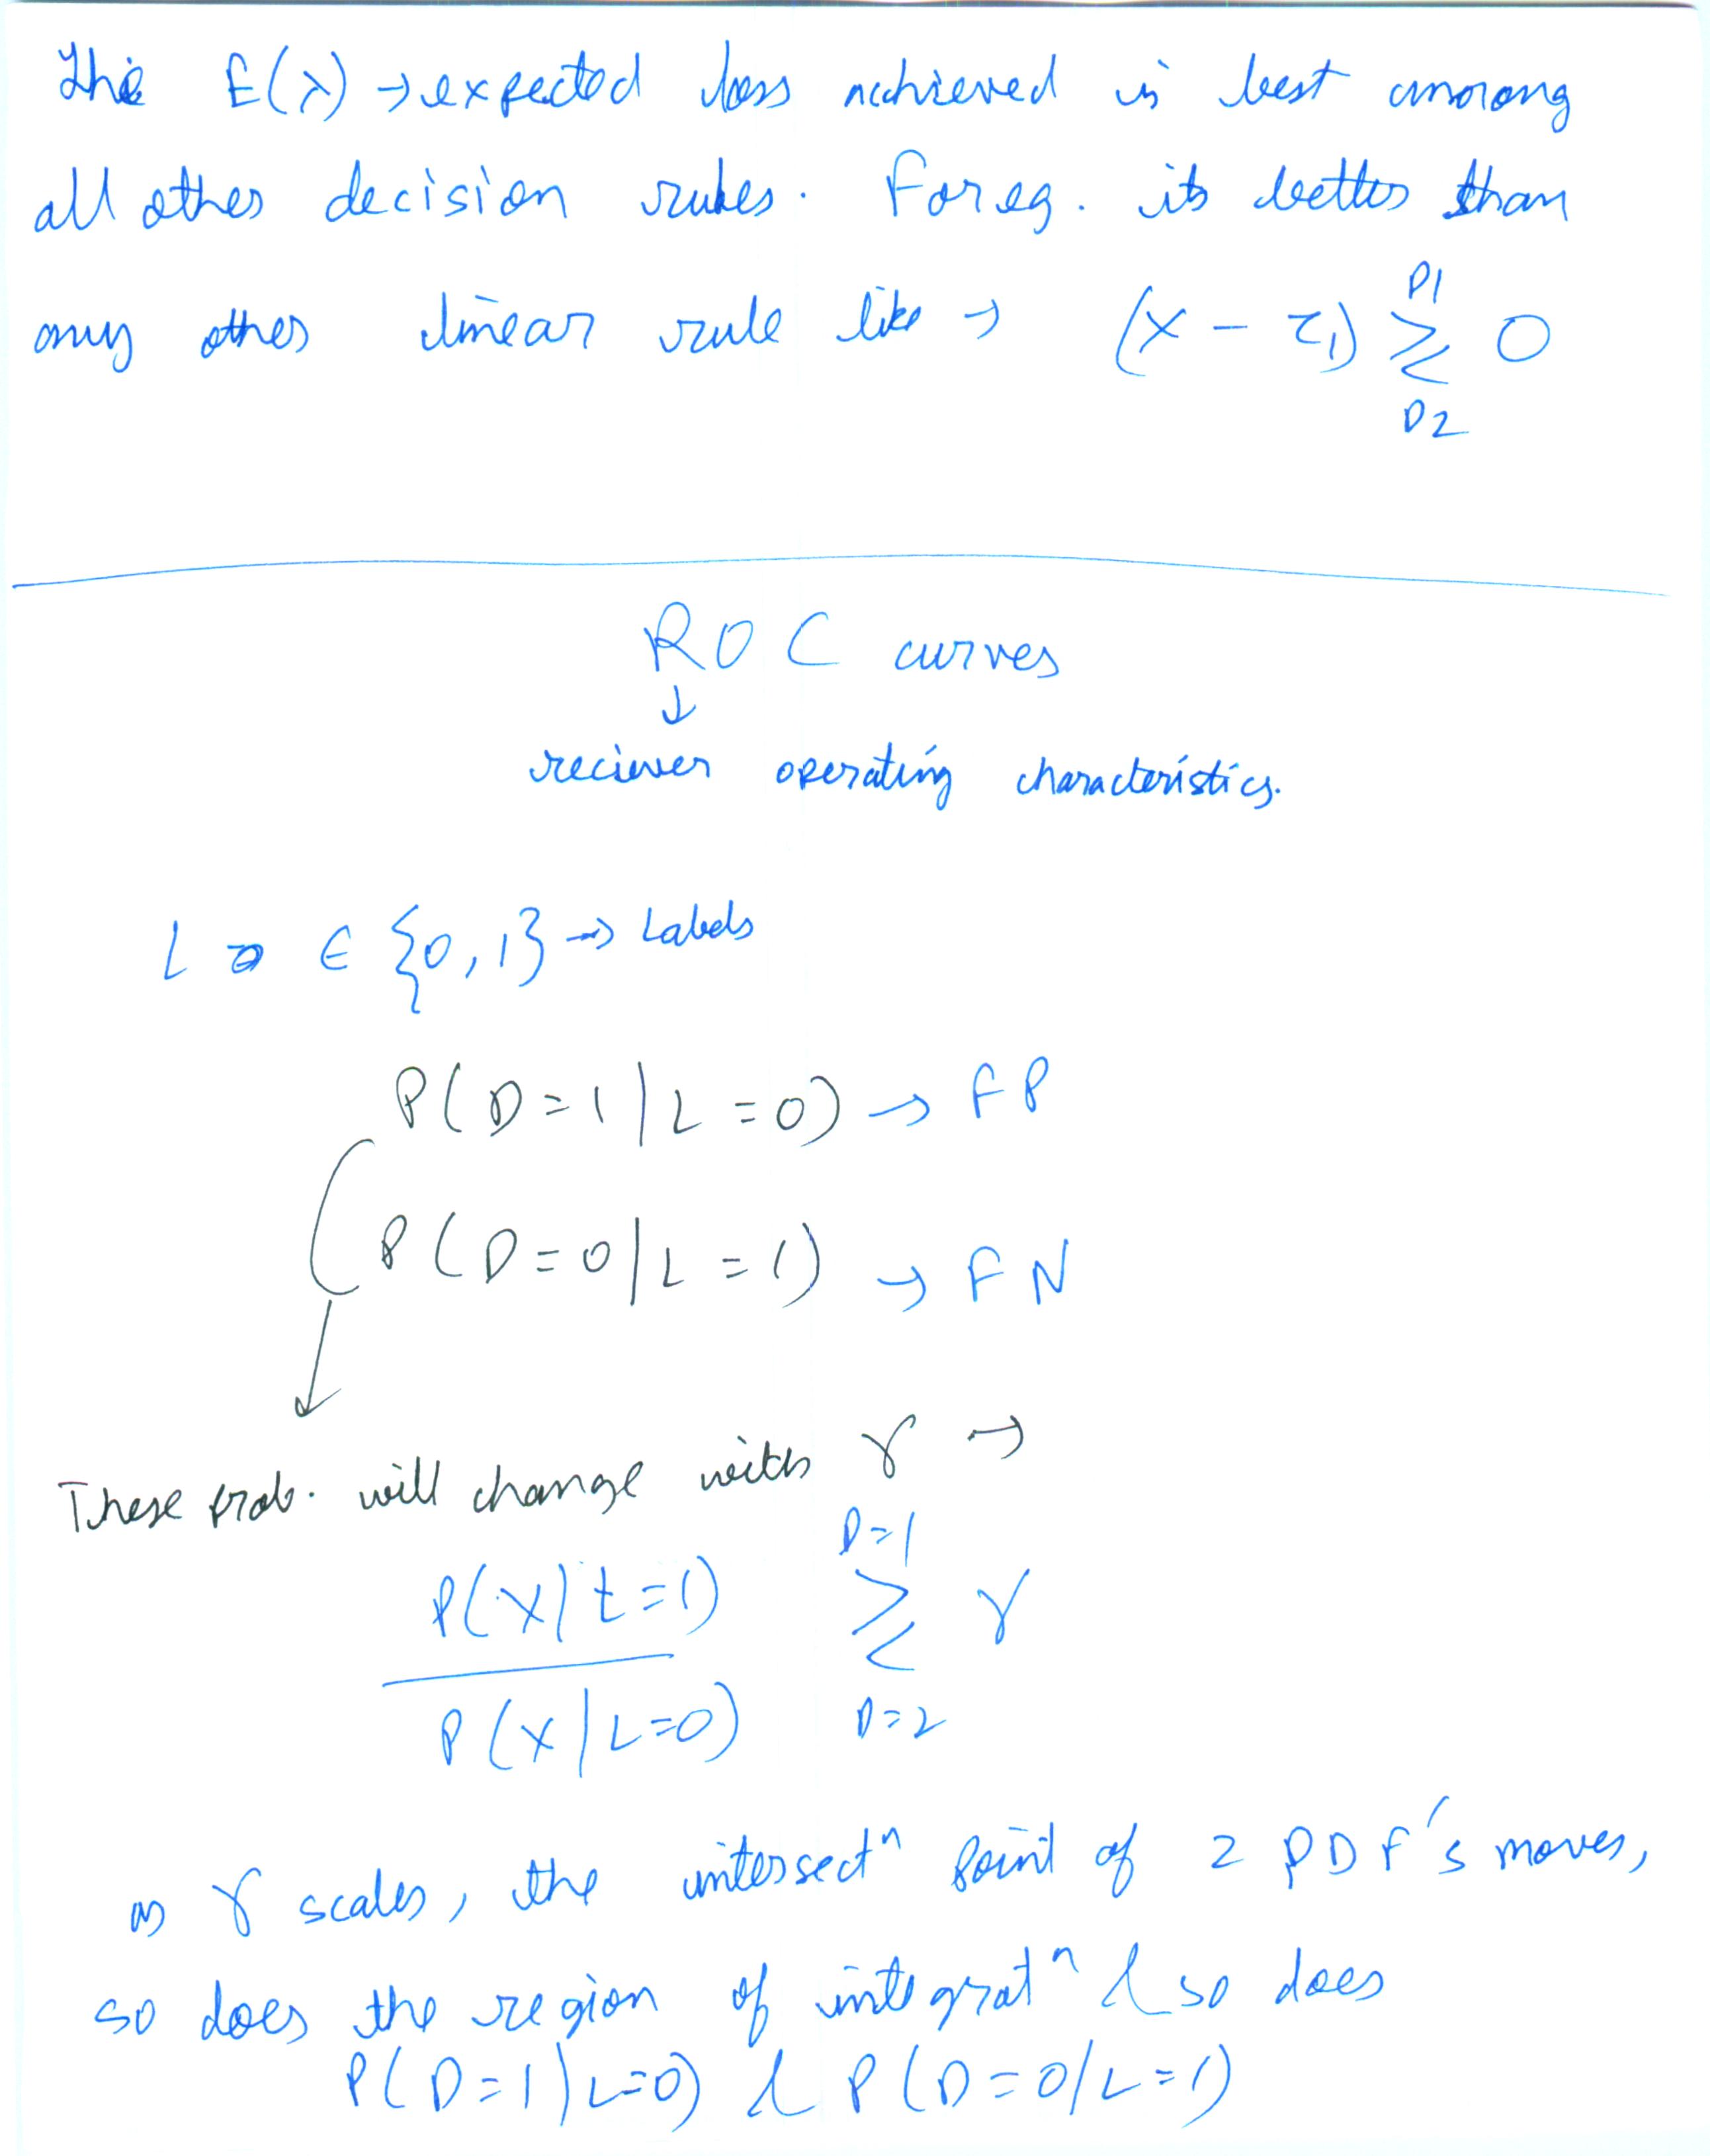 This E(λ) → expected loss achieved is best among
all other decision rules. For eg. its better than
any other linear rule like → (x - τ1) ≷ 0
D1
D2
ROC curves
↓
reciever operating characteristics.
L ∈ {0,1} → Labels
P(D=1|L=0) → FP
P(D=0|L=1) → FN
These prob. will change with γ →
P(x|L=1) / P(x|L=0) ≷ γ
D=1
D=2
as γ scales, the intersectⁿ point of 2 PDF's moves,
so does the region of integratⁿ & so does
P(D=1|L=0) & P(D=0|L=1)